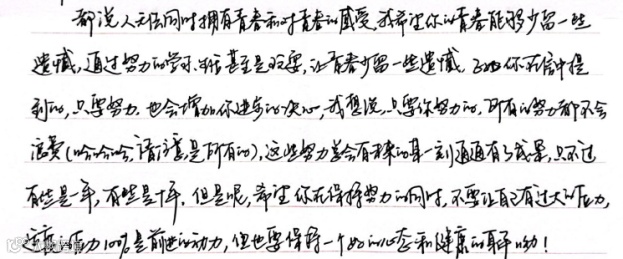 都说人无法同时拥有青春和对青春的感受,我希望你的青春能够少留一些
遗憾,通过努力的学习、生活甚至是玩耍,让青春少留一些遗憾。正如你在信中提
到的,只要努力,也会增加你进步的决心,我想说,只要你努力的,所有的努力都不会
浪费(哈哈哈,请注意,是所有的),这些努力总会有未来的某一刻通通有了成果,只不过
有些是一年,有些是十年。但是呢,希望你在保持努力的同时,不要让自己有过大的压力,
适度压力100%是前进的动力,但也要保持一个好的心态和健康的身体呦!